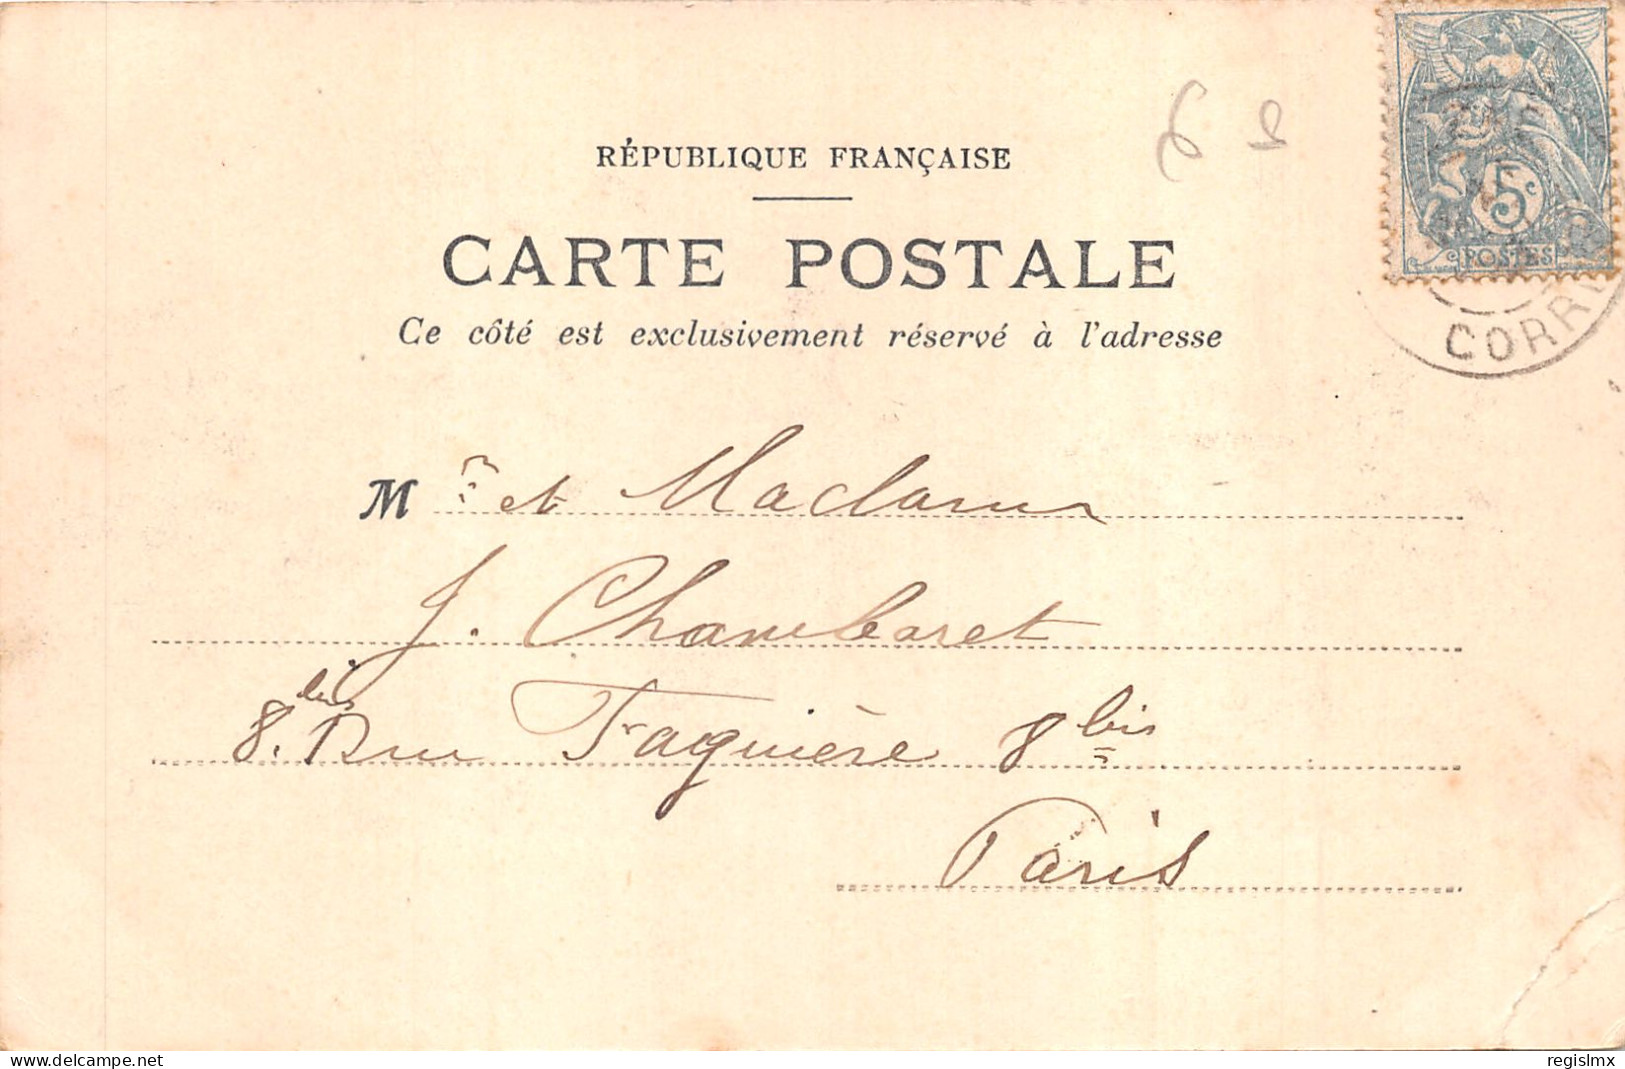 6 9
RÉPUBLIQUE FRANÇAISE
CARTE POSTALE
Ce côté est exclusivement réservé à l'adresse
5c
POSTES
CORR
Mr et Madame
J. Chambaret
8 bis Rue Faguière 8 bis
Paris
delcampe.net
regismx